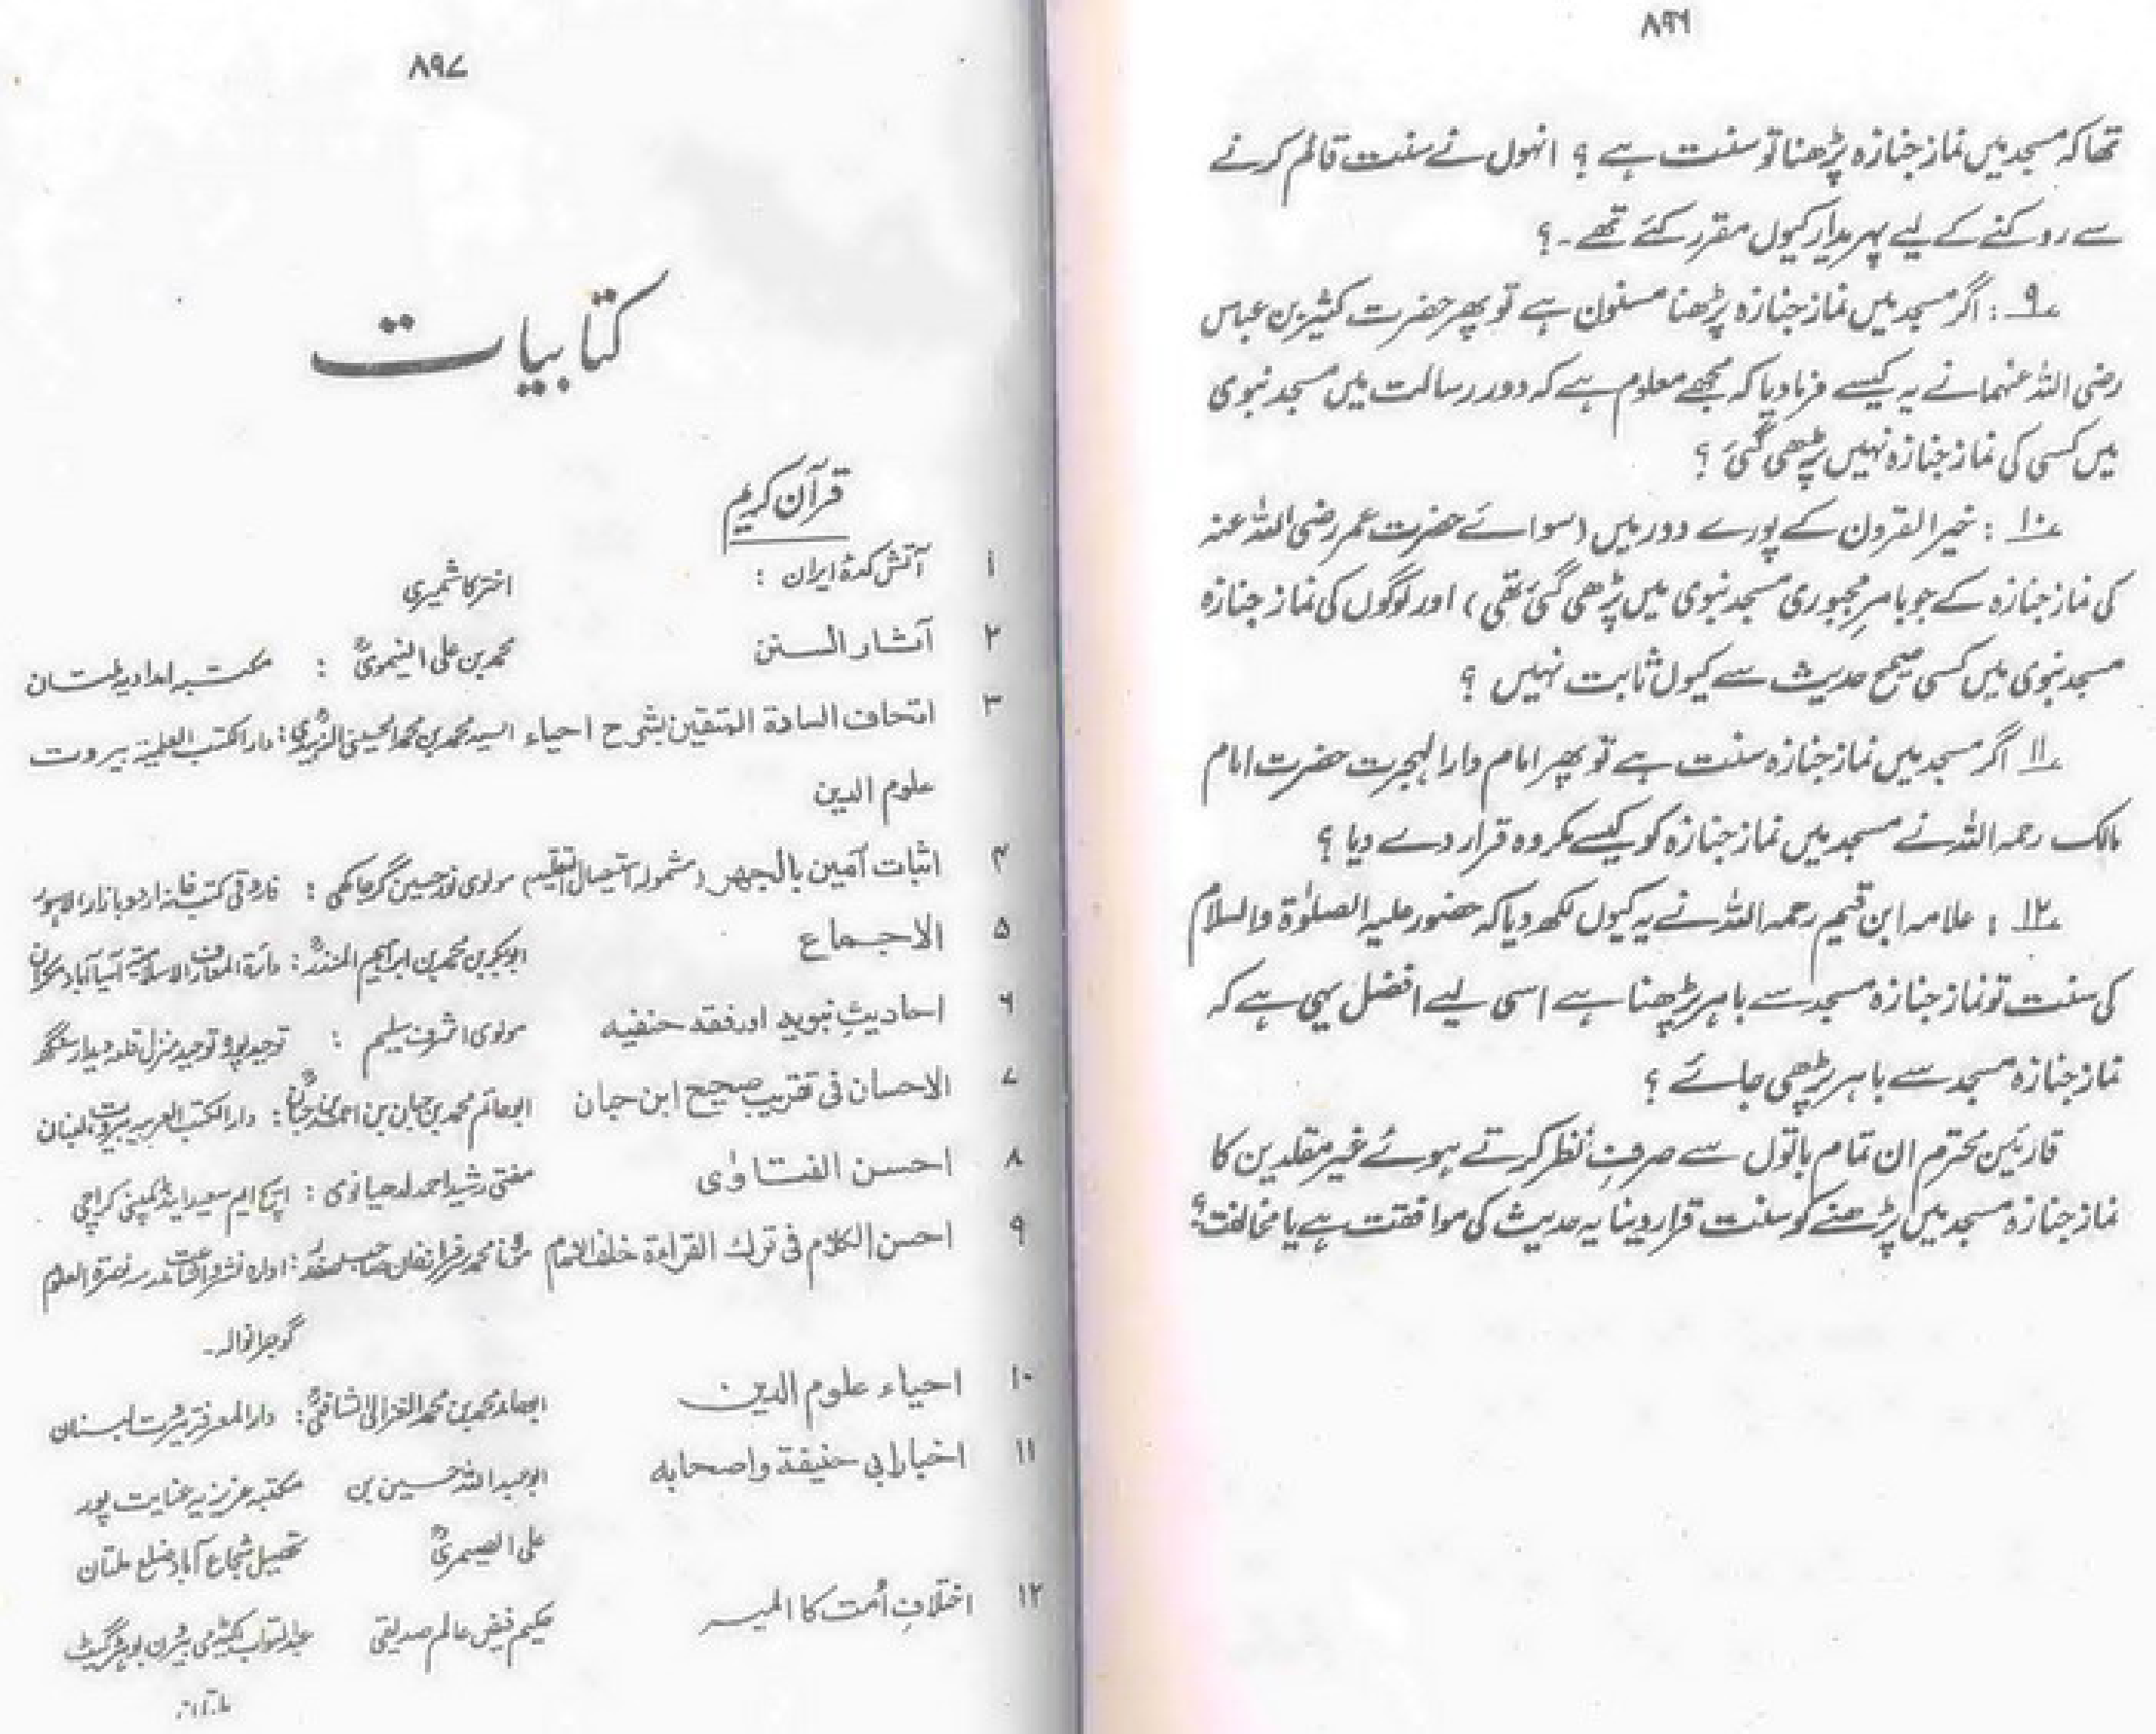 ۸۹۶
تھا کہ مسجد میں نماز جنازہ پڑھنا تو سنت ہے ؟ انہوں نے سنت قائم کرنے
سے روکنے کے لیے پہریدار کیوں مقرر کئے تھے ۔ ؟
۹ : اگر مسجد میں نماز جنازہ پڑھنا مسنون ہے تو پھر حضرت کثیر بن عباس
رضی اللہ عنہما نے یہ کیسے فرما دیا کہ مجھے معلوم ہے کہ دور رسالت میں مسجد نبوی
میں کسی کی نماز جنازہ نہیں پڑھی گئی ؟
۱۰ : خیر القرون کے پورے دور میں (سوائے حضرت عمر رضی اللہ عنہ
کی نماز جنازہ کے جو بامرِ مجبوری مسجد نبوی میں پڑھی گئی تھی) اور لوگوں کی نماز جنازہ
مسجد نبوی میں کسی صحیح حدیث سے کیوں ثابت نہیں ؟
۱۱ اگر مسجد میں نماز جنازہ سنت ہے تو پھر امام دار الہجرت حضرت امام
مالک رحمہ اللہ نے مسجد میں نماز جنازہ کو کیسے مکروہ قرار دے دیا ؟
۱۲ : علامہ ابن قیم رحمہ اللہ نے یہ کیوں لکھ دیا کہ حضور علیہ الصلوٰۃ والسلام
کی سنت تو نماز جنازہ مسجد سے باہر پڑھنا ہے اسی لیے افضل یہی ہے کہ
نماز جنازہ مسجد سے باہر پڑھی جائے ؟
قارئین محترم ان تمام باتوں سے صرفِ نظر کرتے ہوئے غیر مقلدین کا
نماز جنازہ مسجد میں پڑھنے کو سنت قرار دینا یہ حدیث کی موافقت ہے یا مخالفت ؟
۸۹۷
کتابیات
قرآن کریم
۱ آتش کدۂ ایران : اختر کاشمیری
۲ آثار السنن محمد بن علی النیمویؒ : مکتبہ امدادیہ ملتان
۳ اتحاف السادة المتقین بشرح احیاء السید محمد بن محمد الحسینی الزبیدیؒ : دار الکتب العلمیۃ بیروت
علوم الدین
۴ اثبات آمین بالجہر (مشمولہ استیصال التقلید مولوی نور حسین گرجاکھی : فاروقی کتب خانہ اردو بازار لاہور
۵ الاجماع ابوبکر بن محمد بن ابراہیم المنذرؒ : دائرۃ المعارف الاسلامیۃ آسیا آباد مکران
۶ احادیثِ نبویہ اور فقہ حنفیہ مولوی اشرف سلیم : توحید پورہ توحید منزل قلعہ دیدار سنگھ
۷ الاحسان فی تقریب صحیح ابن حبان ابو حاتم محمد بن حبان بن احمد بن حبانؒ : دار الکتب العربیہ بیروت لبنان
۸ احسن الفتاوٰی مفتی رشید احمد لدھیانوی : ایچ ایم سعید اینڈ کمپنی کراچی
۹ احسن الکلام فی ترک القراءۃ خلف الامام مولانا محمد سرفراز خان صاحب صفدر : ادارہ نشر و اشاعت مدرسہ نصرۃ العلوم
گوجرانوالہ ۔
۱۰ احیاء علوم الدین ابو حامد محمد بن محمد الغزالی الشافعیؒ : دار المعرفۃ بیروت لبنان
۱۱ اخبار ابی حنیفة واصحابه ابو عبد اللہ حسین بن مکتبہ عزیزیہ عنایت پور
علی الصیمریؒ تحصیل شجاع آباد ضلع ملتان
۱۲ اختلافِ اُمت کا المیہ حکیم فیض عالم صدیقی عبد التواب اکیڈمی بیرون بوہڑ گیٹ
ملتان